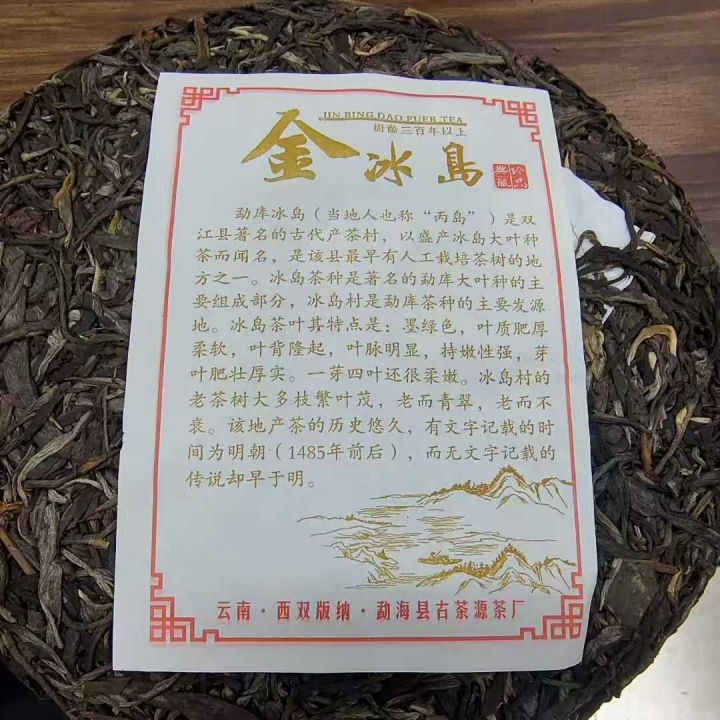 JIN BING DAO PUER TEA
樹齡三百年以上
金冰島
典藏
珍品
勐库冰岛（当地人也称“丙岛”）是双
江县著名的古代产茶村，以盛产冰岛大叶种
茶而闻名，是该县最早有人工栽培茶树的地
方之一。冰岛茶种是著名的勐库大叶种的主
要组成部分，冰岛村是勐库茶种的主要发源
地。冰岛茶叶其特点是：墨绿色，叶质肥厚
柔软，叶背隆起，叶脉明显，持嫩性强，芽
叶肥壮厚实。一芽四叶还很柔嫩。冰岛村的
老茶树大多枝繁叶茂，老而青翠，老而不
衰。该地产茶的历史悠久，有文字记载的时
间为明朝（1485年前后），而无文字记载的
传说却早于明。
云南·西双版纳·勐海县古茶源茶厂